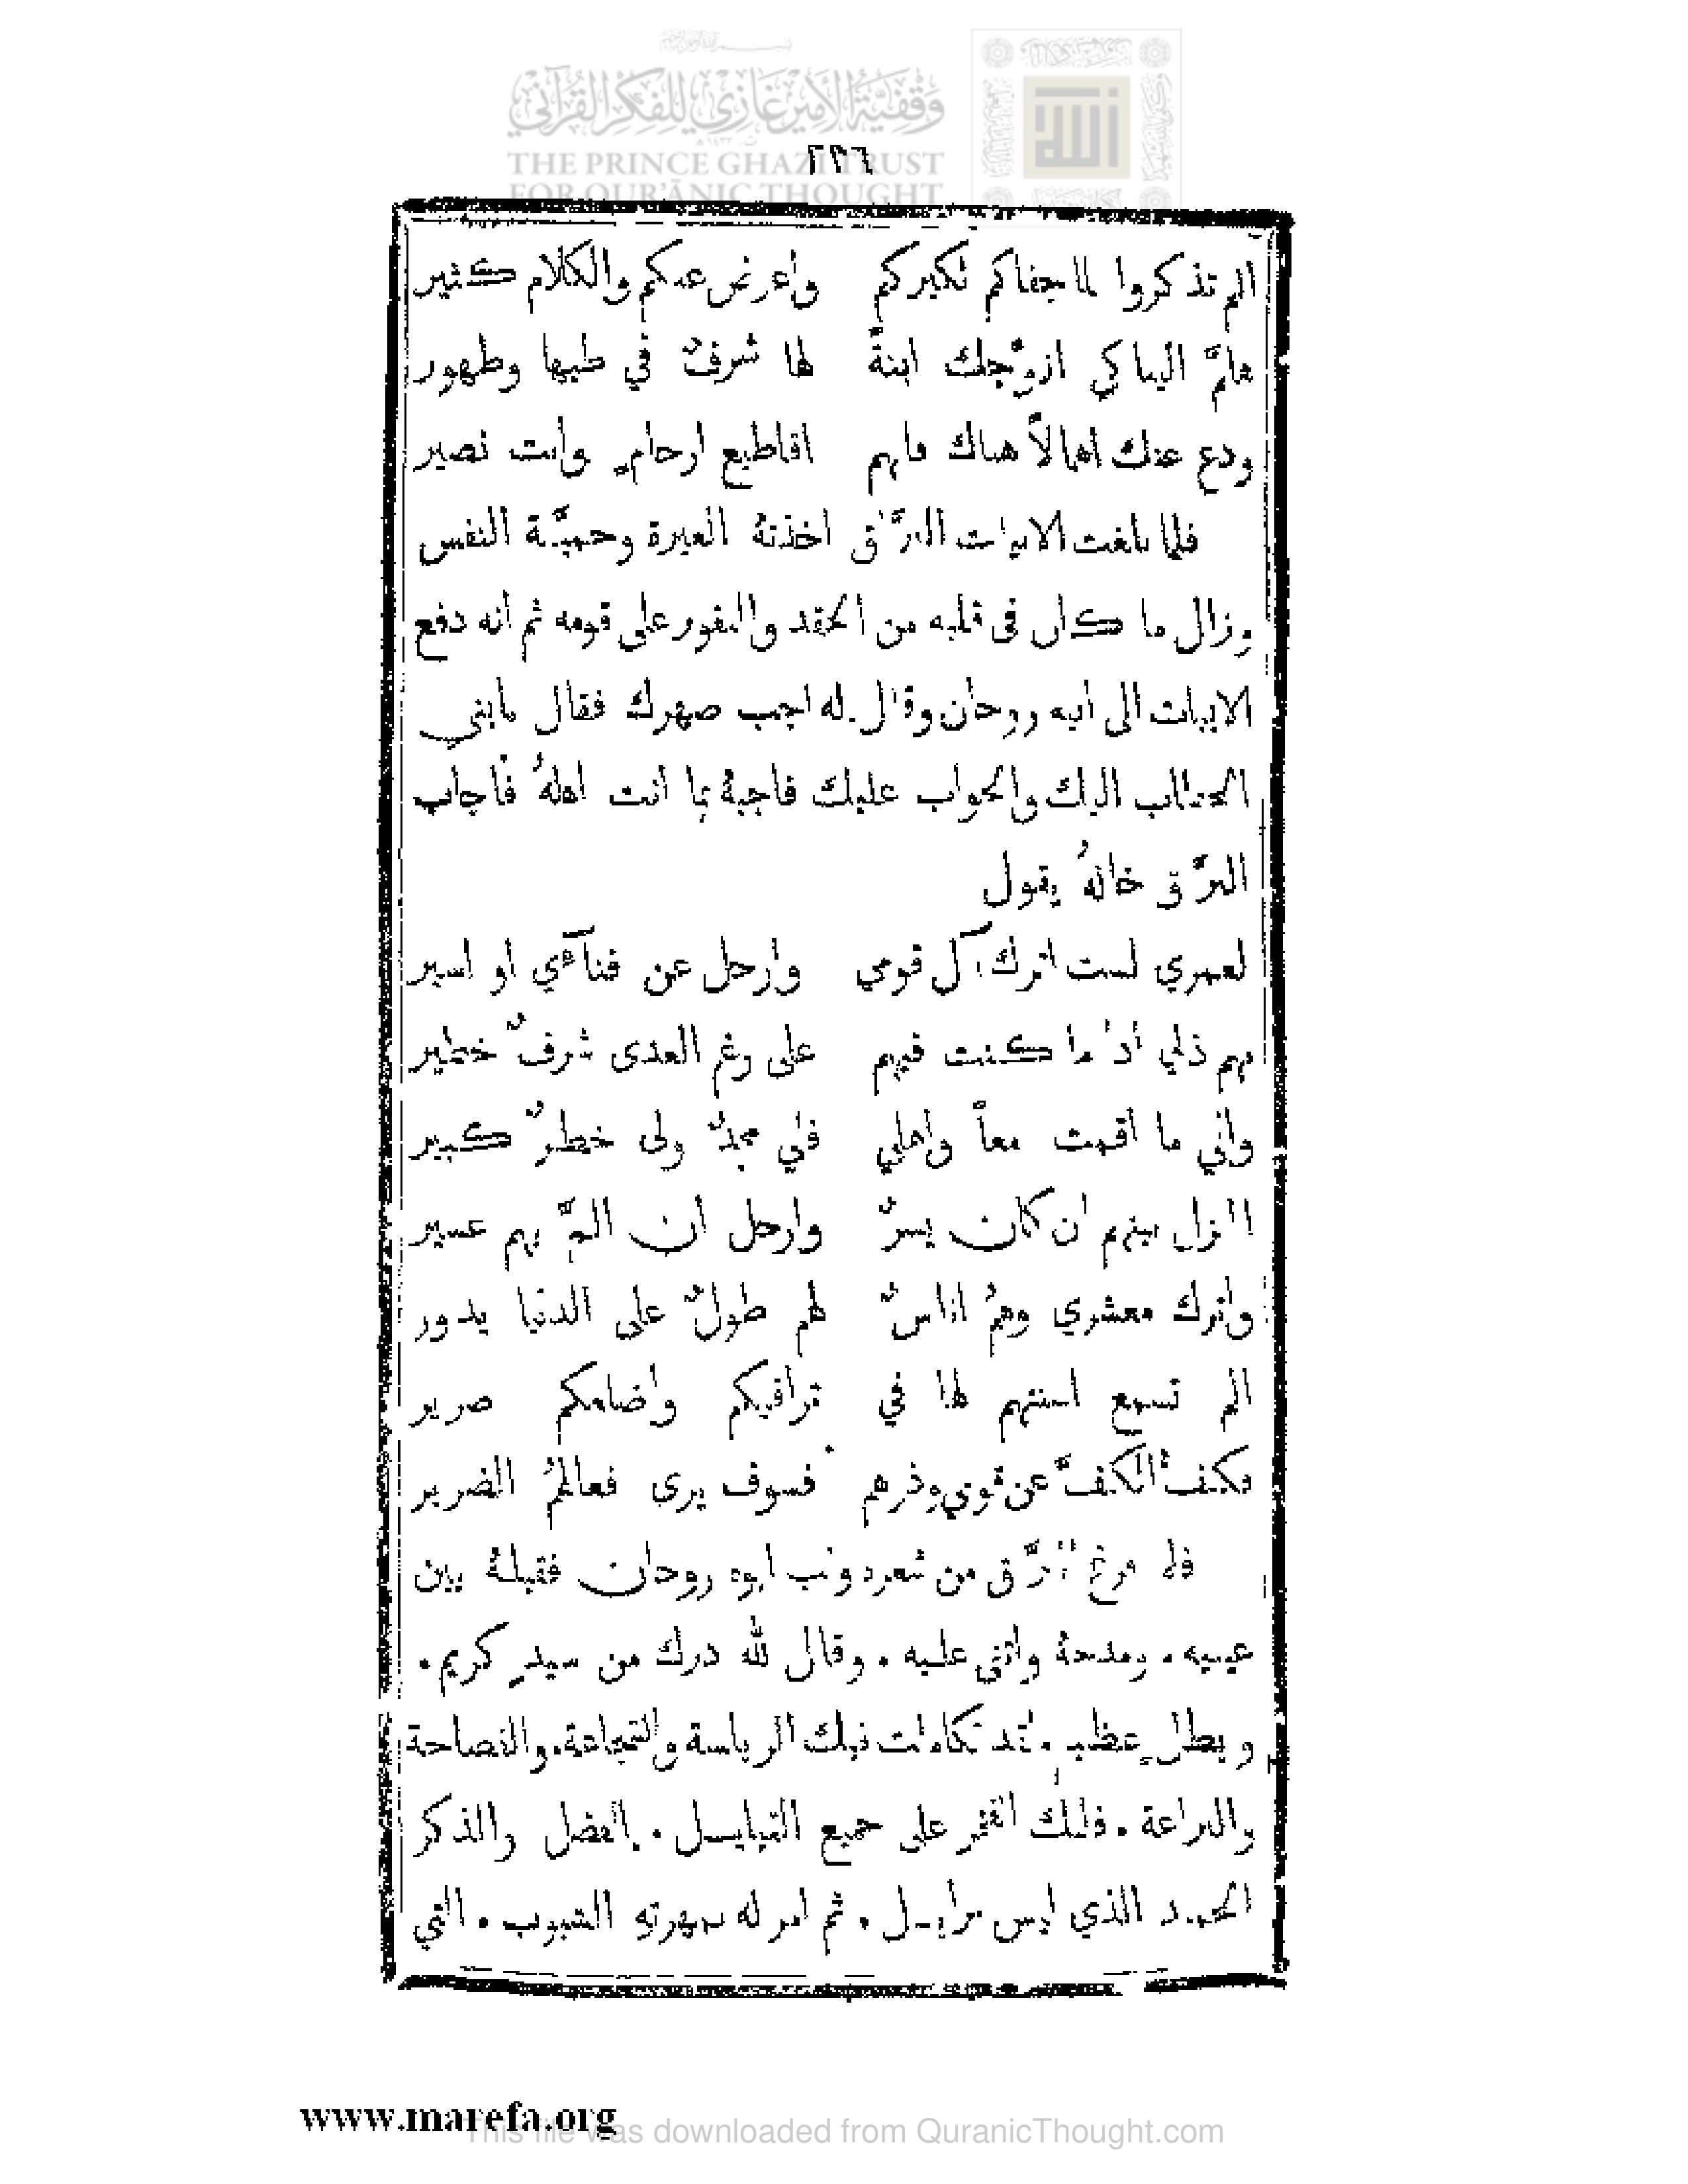 وقفية الأمير غازي للفكر القرآني
THE PRINCE GHAZI TRUST
FOR QUR'ĀNIC THOUGHT
٢٢٦
الم تذكروا لما جفاكم نكيركم واعرض عنكم والكلام كثير
هلمَّ الينا كي ازوّجك ابنةً لها شرفٌ في طيها وظهور
ودع عنك اهلاً هناك فانهم اقاطيع ارحامٍ وانت نصير
فلما بلغت الابيات البرَّاق اخذتهُ الغيرة وحميَّة النفس
وزال ما كان في قلبه من الحقد والنفور على قومه ثم انه دفع
الابيات الى ابيه روحان وقال له اجب صهرك فقال يابني
الخطاب اليك والجواب عليك فاجبهُ بما انت اهلهُ فاجاب
البرَّاق خالهُ يقول
لعمري لست اترك آل قومي وارحل عن فنآئي او اسير
بهم ذلي اذا ما كنت فيهم على رغم العدى شرفٌ خطير
واني ما اقمت معاً واهلي فلي مجدٌ ولي خطرٌ كبير
اانزل بينهم ان كان يسرٌ وارحل ان المَّ بهم عسير
واترك معشري وهمُ اناسٌ لهم طولٌ على الدنيا يدور
الم تسمع اسنتهم لها في تراقيكم واضلعكم صرير
فكفَّ الكفَّ عن قومي وذرهم فسوف يرى فعالهمُ الضرير
فلما فرغ البرَّاق من شعره وثب ابوه روحان فقبلهُ بين
عينيه. ومدحهُ واثنى عليه. وقال لله درك من سيدٍ كريم.
وبطلٍ عظيم. لقد تكاملت فيك الرياسة والشجاعة. والفصاحة
والبراعة. فلك الفخر على جميع القبايـل. بالفضل والذكر
الحميد الذي ليس بزايـل. ثم امر له بمهرته الشبوب. التي
www.marefa.org
This file was downloaded from QuranicThought.com